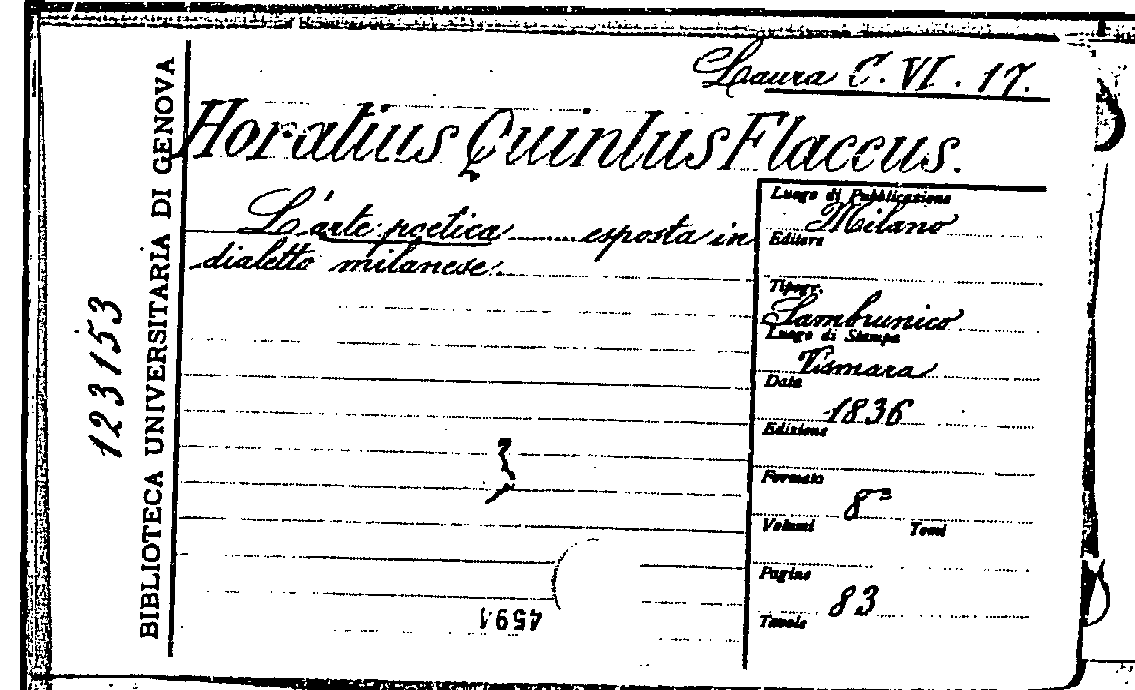 Laura C. VI. 17.
Horatius Quintus Flaccus.
L'arte poetica ...... esposta in
dialetto milanese.
Luogo di Pubblicazione
Milano
Editore
Tipogr.
Sambrunico
Luogo di Stampa
Vismara
Data
1836
Edizione
Formato
8°
Volumi Tomi
Pagine
83
Tavole
4591
BIBLIOTECA UNIVERSITARIA DI GENOVA
123153